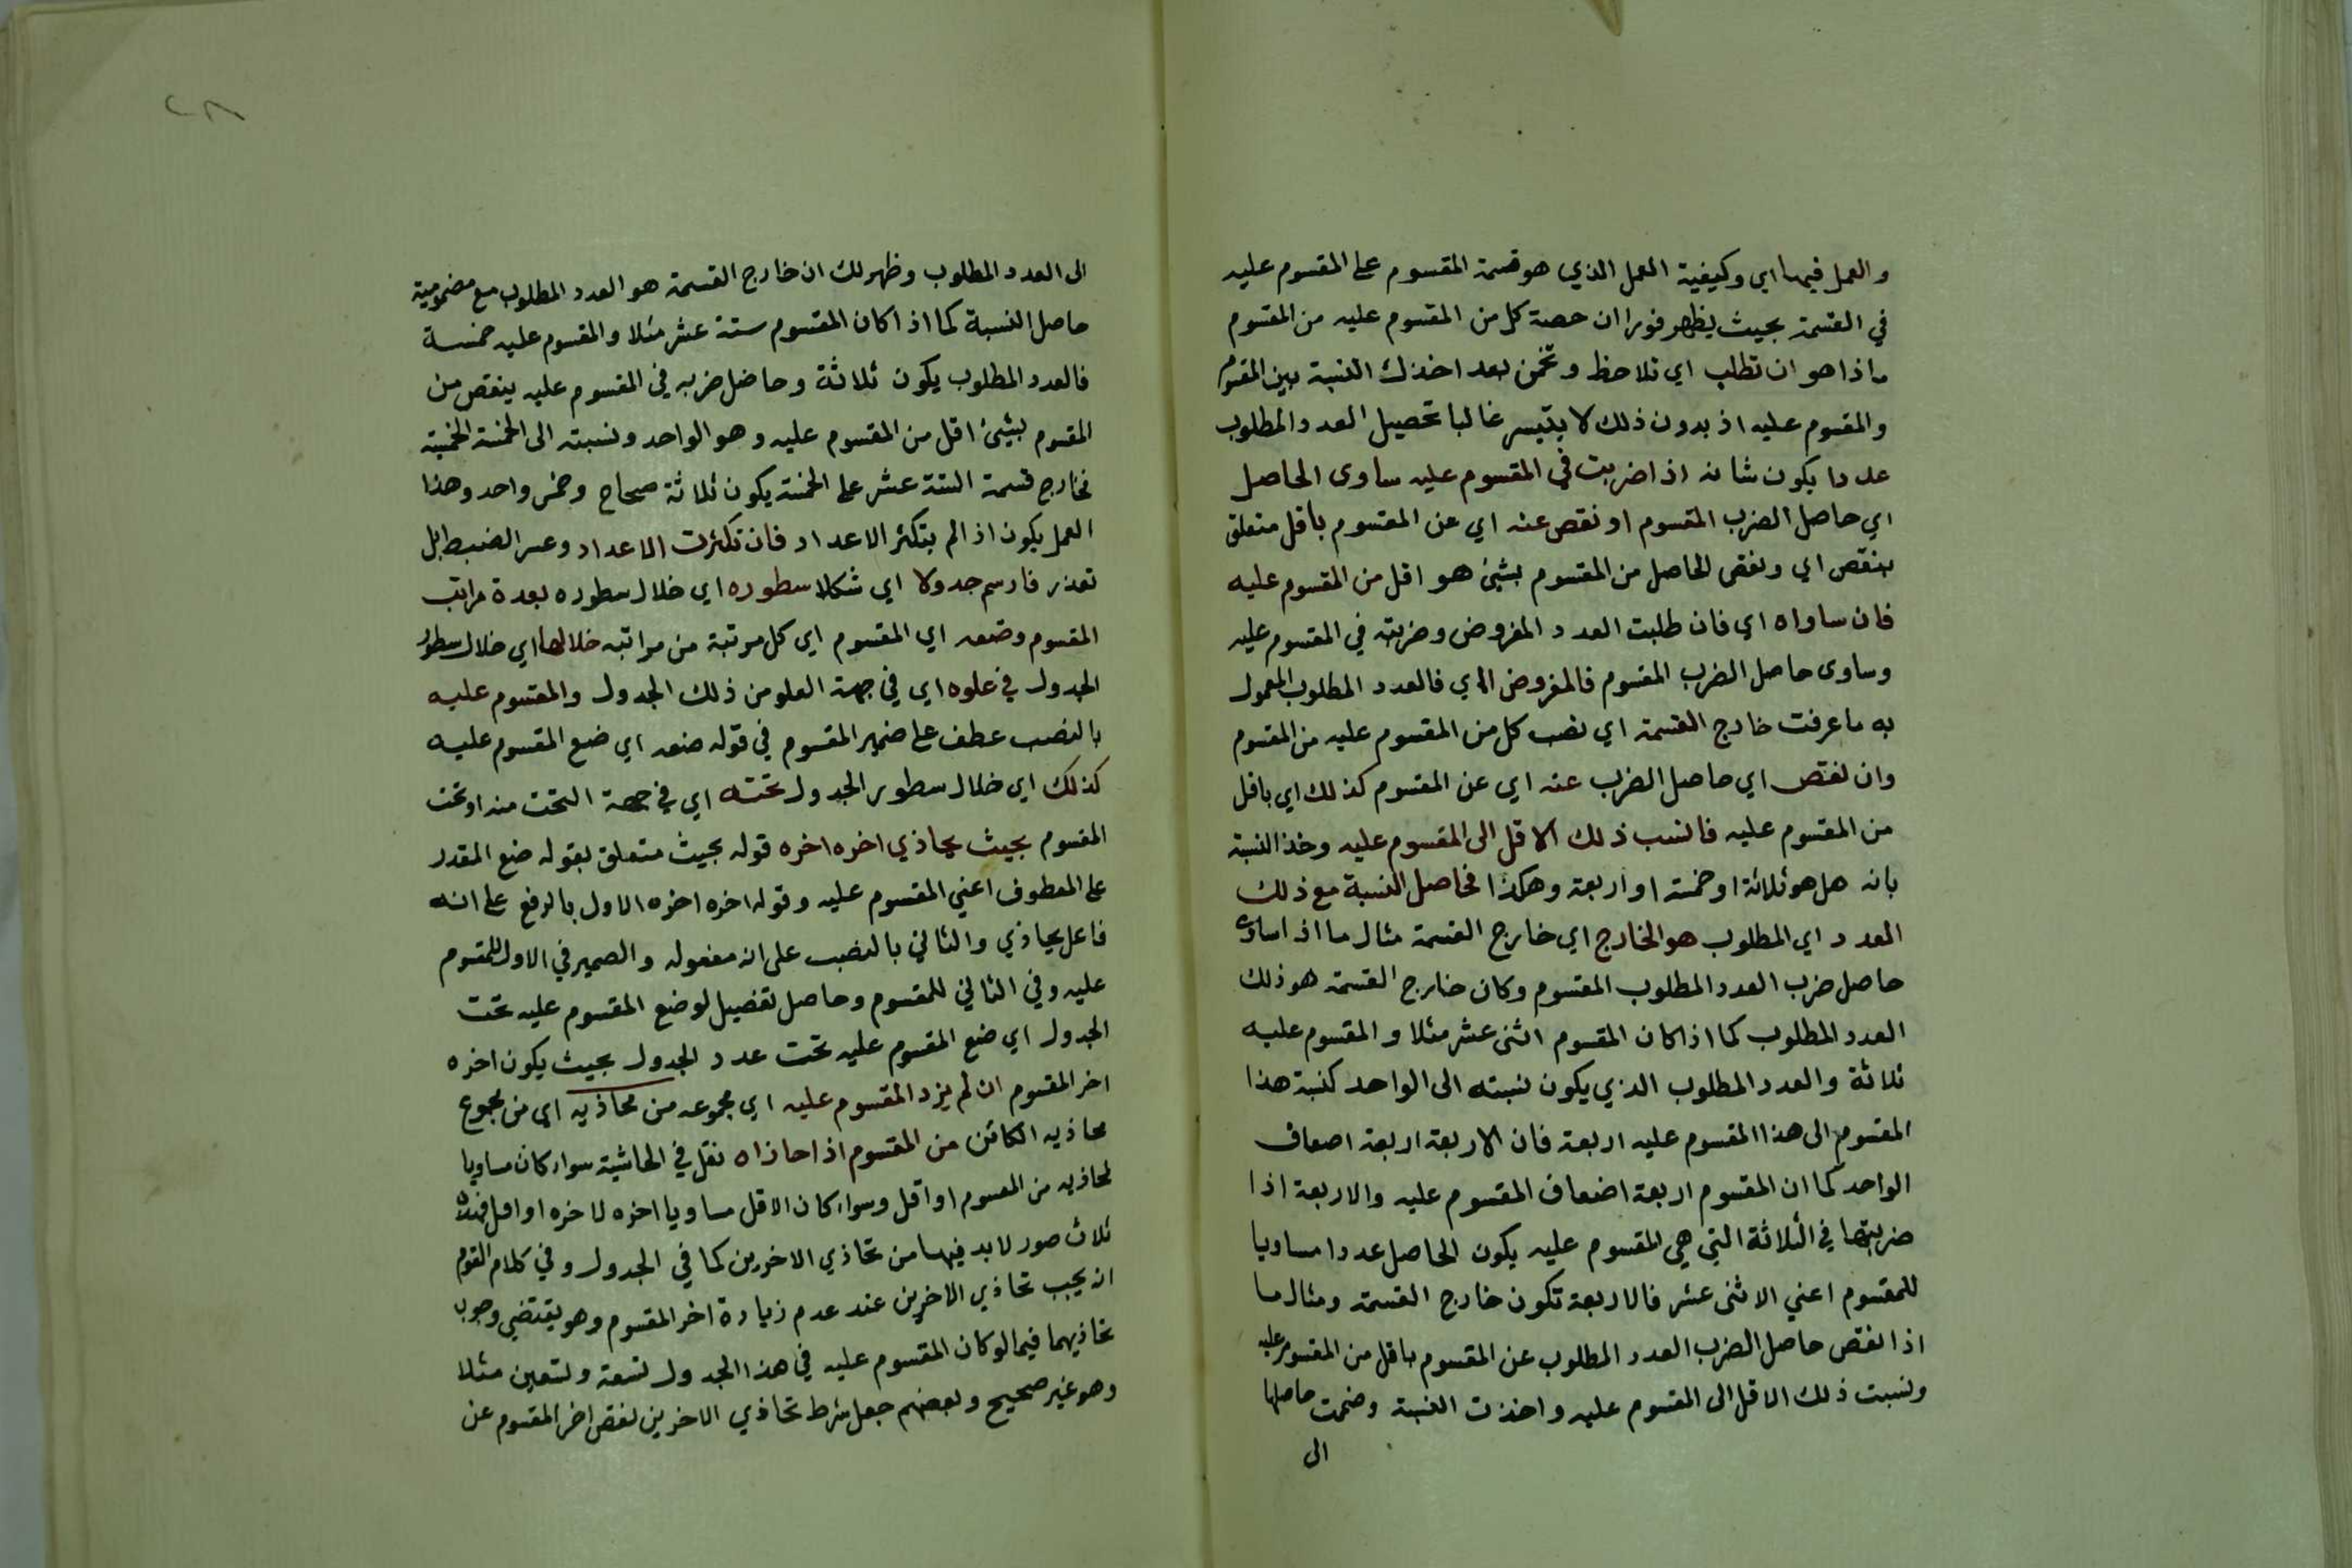 والعمل فيها اي وكيفية العمل الذي هو قسمة المقسوم على المقسوم عليه
في القسمة بحيث يظهر فورا ان حصة كل من المقسوم عليه من المقسوم
ماذا هو ان تطلب اي تلاحظ وتخمن بعد اخذك النسبة بين المقسوم
والمقسوم عليه اذ بدون ذلك لا يتيسر غالبا تحصيل العدد المطلوب
عددا يكون شانه اذا ضربت في المقسوم عليه ساوى الحاصل
اي حاصل الضرب المقسوم او نقص عنه اي عن المقسوم باقل متعلق
بنقص اي ونقص الحاصل من المقسوم بشئ هو اقل من المقسوم عليه
فان ساواه اي فان طلبت العدد المفروض وضربته في المقسوم عليه
وساوى حاصل الضرب المقسوم فالمفروض اي فالعدد المطلوب المعمول
به ما عرفت خارج القسمة اي نصيب كل من المقسوم عليه من المقسوم
وان نقص اي حاصل الضرب عنه اي عن المقسوم كذلك اي باقل
من المقسوم عليه فانسب ذلك الاقل الى المقسوم عليه وخذ النسبة
بانه هل هو ثلاثة او خمسة او اربعة وهكذا فحاصل النسبة مع ذلك
العدد اي المطلوب هو الخارج اي خارج القسمة مثال ما اذا ساوى
حاصل ضرب العدد المطلوب المقسوم وكان خارج القسمة هو ذلك
العدد المطلوب كما اذا كان المقسوم اثنى عشر مثلا والمقسوم عليه
ثلاثة والعدد المطلوب الذي يكون نسبته الى الواحد كنسبة هذا
المقسوم الى هذا المقسوم عليه اربعة فان الاربعة اربعة اضعاف
الواحد كما ان المقسوم اربعة اضعاف المقسوم عليه والاربعة اذا
ضربتها في الثلاثة التي هي المقسوم عليه يكون الحاصل عددا مساويا
للمقسوم اعني الاثنى عشر فالاربعة تكون خارج القسمة ومثال ما
اذا نقص حاصل الضرب العدد المطلوب عن المقسوم باقل من المقسوم عليه
ونسبت ذلك الاقل الى المقسوم عليه واخذت النسبة وضممت حاصلها
الى
٢٨
الى العدد المطلوب وظهر لك ان خارج القسمة هو العدد المطلوب مع مضمومية
حاصل النسبة كما اذا كان المقسوم ستة عشر مثلا والمقسوم عليه خمسة
فالعدد المطلوب يكون ثلاثة وحاصل ضربه في المقسوم عليه ينقص من
المقسوم بشئ اقل من المقسوم عليه وهو الواحد ونسبته الى الخمسة الخمسية
فخارج قسمة الستة عشر على الخمسة يكون ثلاثة صحاح وخمس واحد وهذا
العمل يكون اذا لم يتكثر الاعداد فان تكثرت الاعداد وعسر الضبط بل
تعذر فارسم جدولا اي شكلا سطوره اي خلال سطوره بعدة مراتب
المقسوم وضعه اي المقسوم اي كل مرتبة من مراتبه خلالها اي خلال سطور
الجدول في علوه اي في جهة العلو من ذلك الجدول والمقسوم عليه
بالنصب عطف على ضمير المقسوم في قوله ضعه اي ضع المقسوم عليه
كذلك اي خلال سطور الجدول تحته اي في جهة التحت منه او تحت
المقسوم بحيث يحاذي اخره اخره قوله بحيث متعلق بقوله ضع المقدر
على المعطوف اعني المقسوم عليه وقوله اخره اخره الاول بالرفع على انه
فاعل يحاذي والثاني بالنصب على انه مفعوله والضمير في الاول للمقسوم
عليه وفي الثاني للمقسوم وحاصل تفصيل لوضع المقسوم عليه تحت
الجدول اي ضع المقسوم عليه تحت عدد الجدول بحيث يكون اخره
اخر المقسوم ان لم يزد المقسوم عليه اي مجموعه من محاذيه اي من مجموع
محاذيه الكائن من المقسوم اذا حاذاه نقل في الحاشية سواء كان مساويا
لمحاذيه من المقسوم او اقل وسواء كان الاقل مساويا اخره لاخره او اقل فهذه
ثلاث صور لابد فيها من تحاذي الاخرين كما في الجدول وفي كلام القوم
انه يجب تحاذي الاخرين عند عدم زيادة اخر المقسوم وهو يقتضي وجوب
تحاذيهما فيما لو كان المقسوم عليه في هذا الجدول تسعة وتسعين مثلا
وهو غير صحيح وبعضهم جعل شرط تحاذي الاخرين نقص اخر المقسوم عن